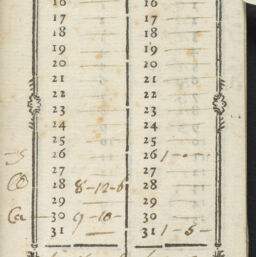 16 16
17 17
18 18
19 19
20 20
21 21
22 22
23 23
24 24
25 25
26 26 1-0-
27 27
28 8-12-6 28
29 29
30 9-10- 30
31 31 1-5-